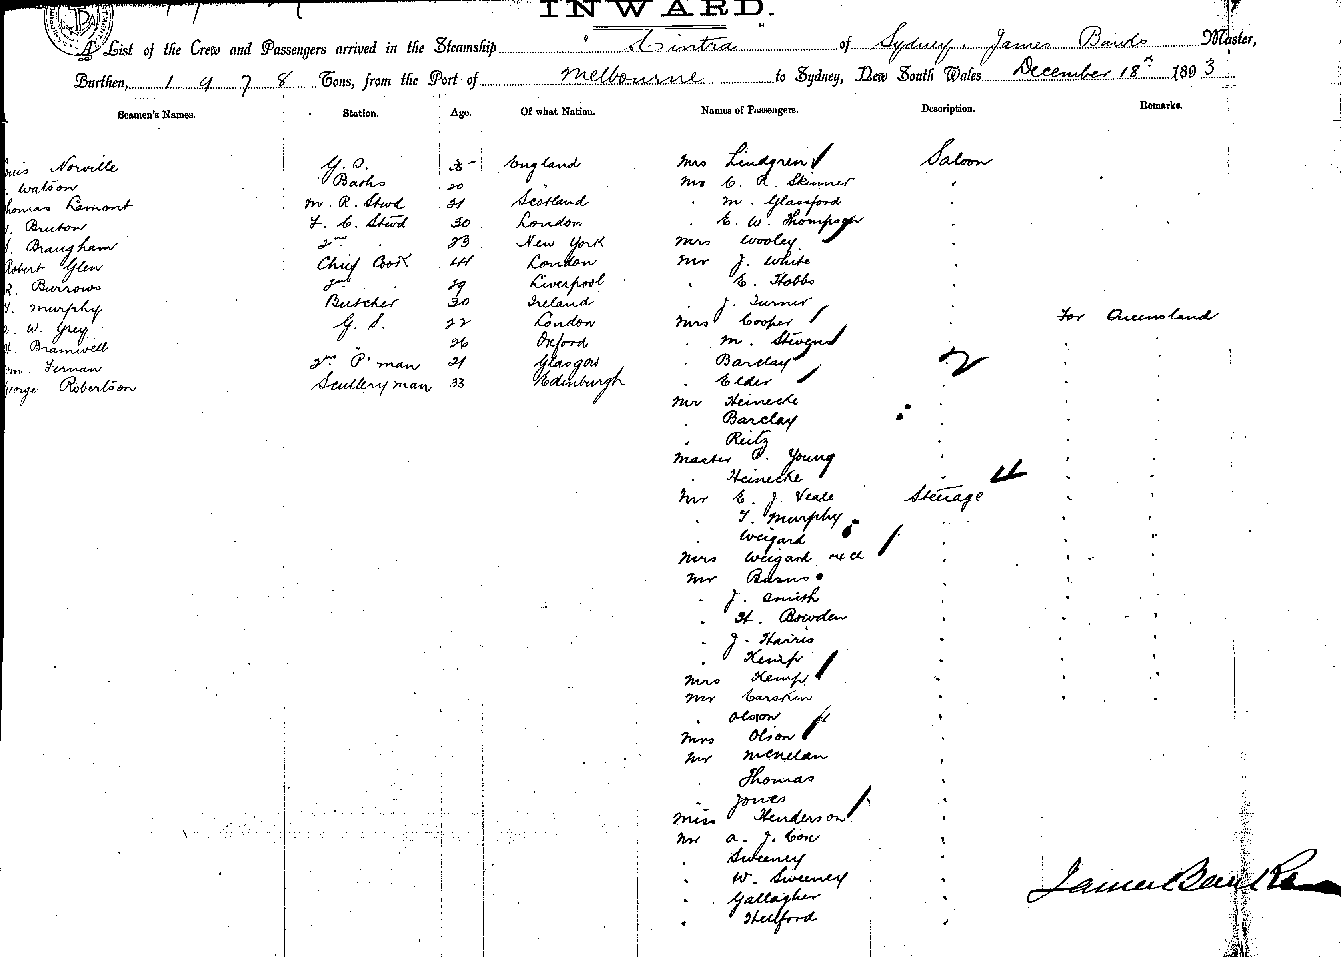 INWARD.
A List of the Crew and Passengers arrived in the Steamship " Cintra " of Sydney, James Banks Master,
Burthen, 1978 Tons, from the Port of Melbourne to Sydney, New South Wales December 18th 1893
Seamen's Names. Station. Age. Of what Nation. Names of Passengers. Description. Remarks.
Norville G. S. England Mrs Lindgren Saloon
Watson Baths 20 Mr C. R. Skinner
Thomas Lamont M. R. Stwd 21 Scotland " M. Glassford
Bruton F. C. Stwd 30 London " E. W. Thompson
Braugham 2nd 23 New York Mrs Wooley
Robert Glen Chief Cook 41 London Mr J. White
Burrows 2nd 29 Liverpool " E. Hobbs
Murphy Butcher 30 Ireland " J. Turner
W. Grey G. S. 22 London Mrs Cooper For Queensland
Bramwell 26 Oxford " M. Stevens
Fernan 2nd P. man 21 Glasgow " Barclay
George Robertson Scullery man 33 Edinburgh " Elder
Mr Heinecke
" Barclay
" Reitz
Master P. Young
" Heinecke
Mr E. J. Veale Steerage
" T. Murphy
" Weigard
Mrs Weigard
Mr Burns
" J. Smith
" H. Bowden
" J. Harris
" Kemp
Mrs Kemp
Mr Carsten
" Olson
Mrs Olson
Mr McNelan
" Thomas
" Jones
Miss Henderson
Mr A. J. Cox
" Sweeney
" W. Sweeney
" Gallagher
" Hulford
James Banks